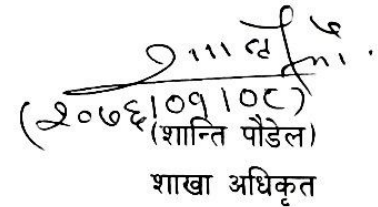 (२०७६।०९।०८)
(शान्ति पौडेल)
शाखा अधिकृत